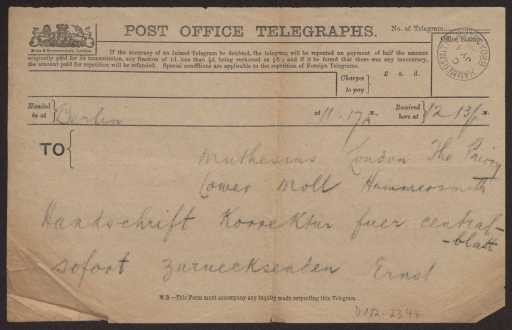 POST OFFICE TELEGRAPHS.
No. of Telegram
If the accuracy of an Inland Telegram be doubted, the telegram will be repeated on payment of half the amount
originally paid for its transmission, any fraction of 1d. less than ½d. being reckoned as ½d.; and if it be found that there was any inaccuracy,
the amount paid for repetition will be refunded. Special conditions are applicable to the repetition of Foreign Telegrams.
Charges to pay
£ s. d.
Handed in at
Berlin
at 11.17
Received here at
12.13
TO
Muthesius London The Priory
Lower Mall Hammersmith
Handschrift Korrektur fuer central-
-blatt
sofort zuruecksenden Ernst
N.B.—This Form must accompany any inquiry made respecting this Telegram.
D 102-2348